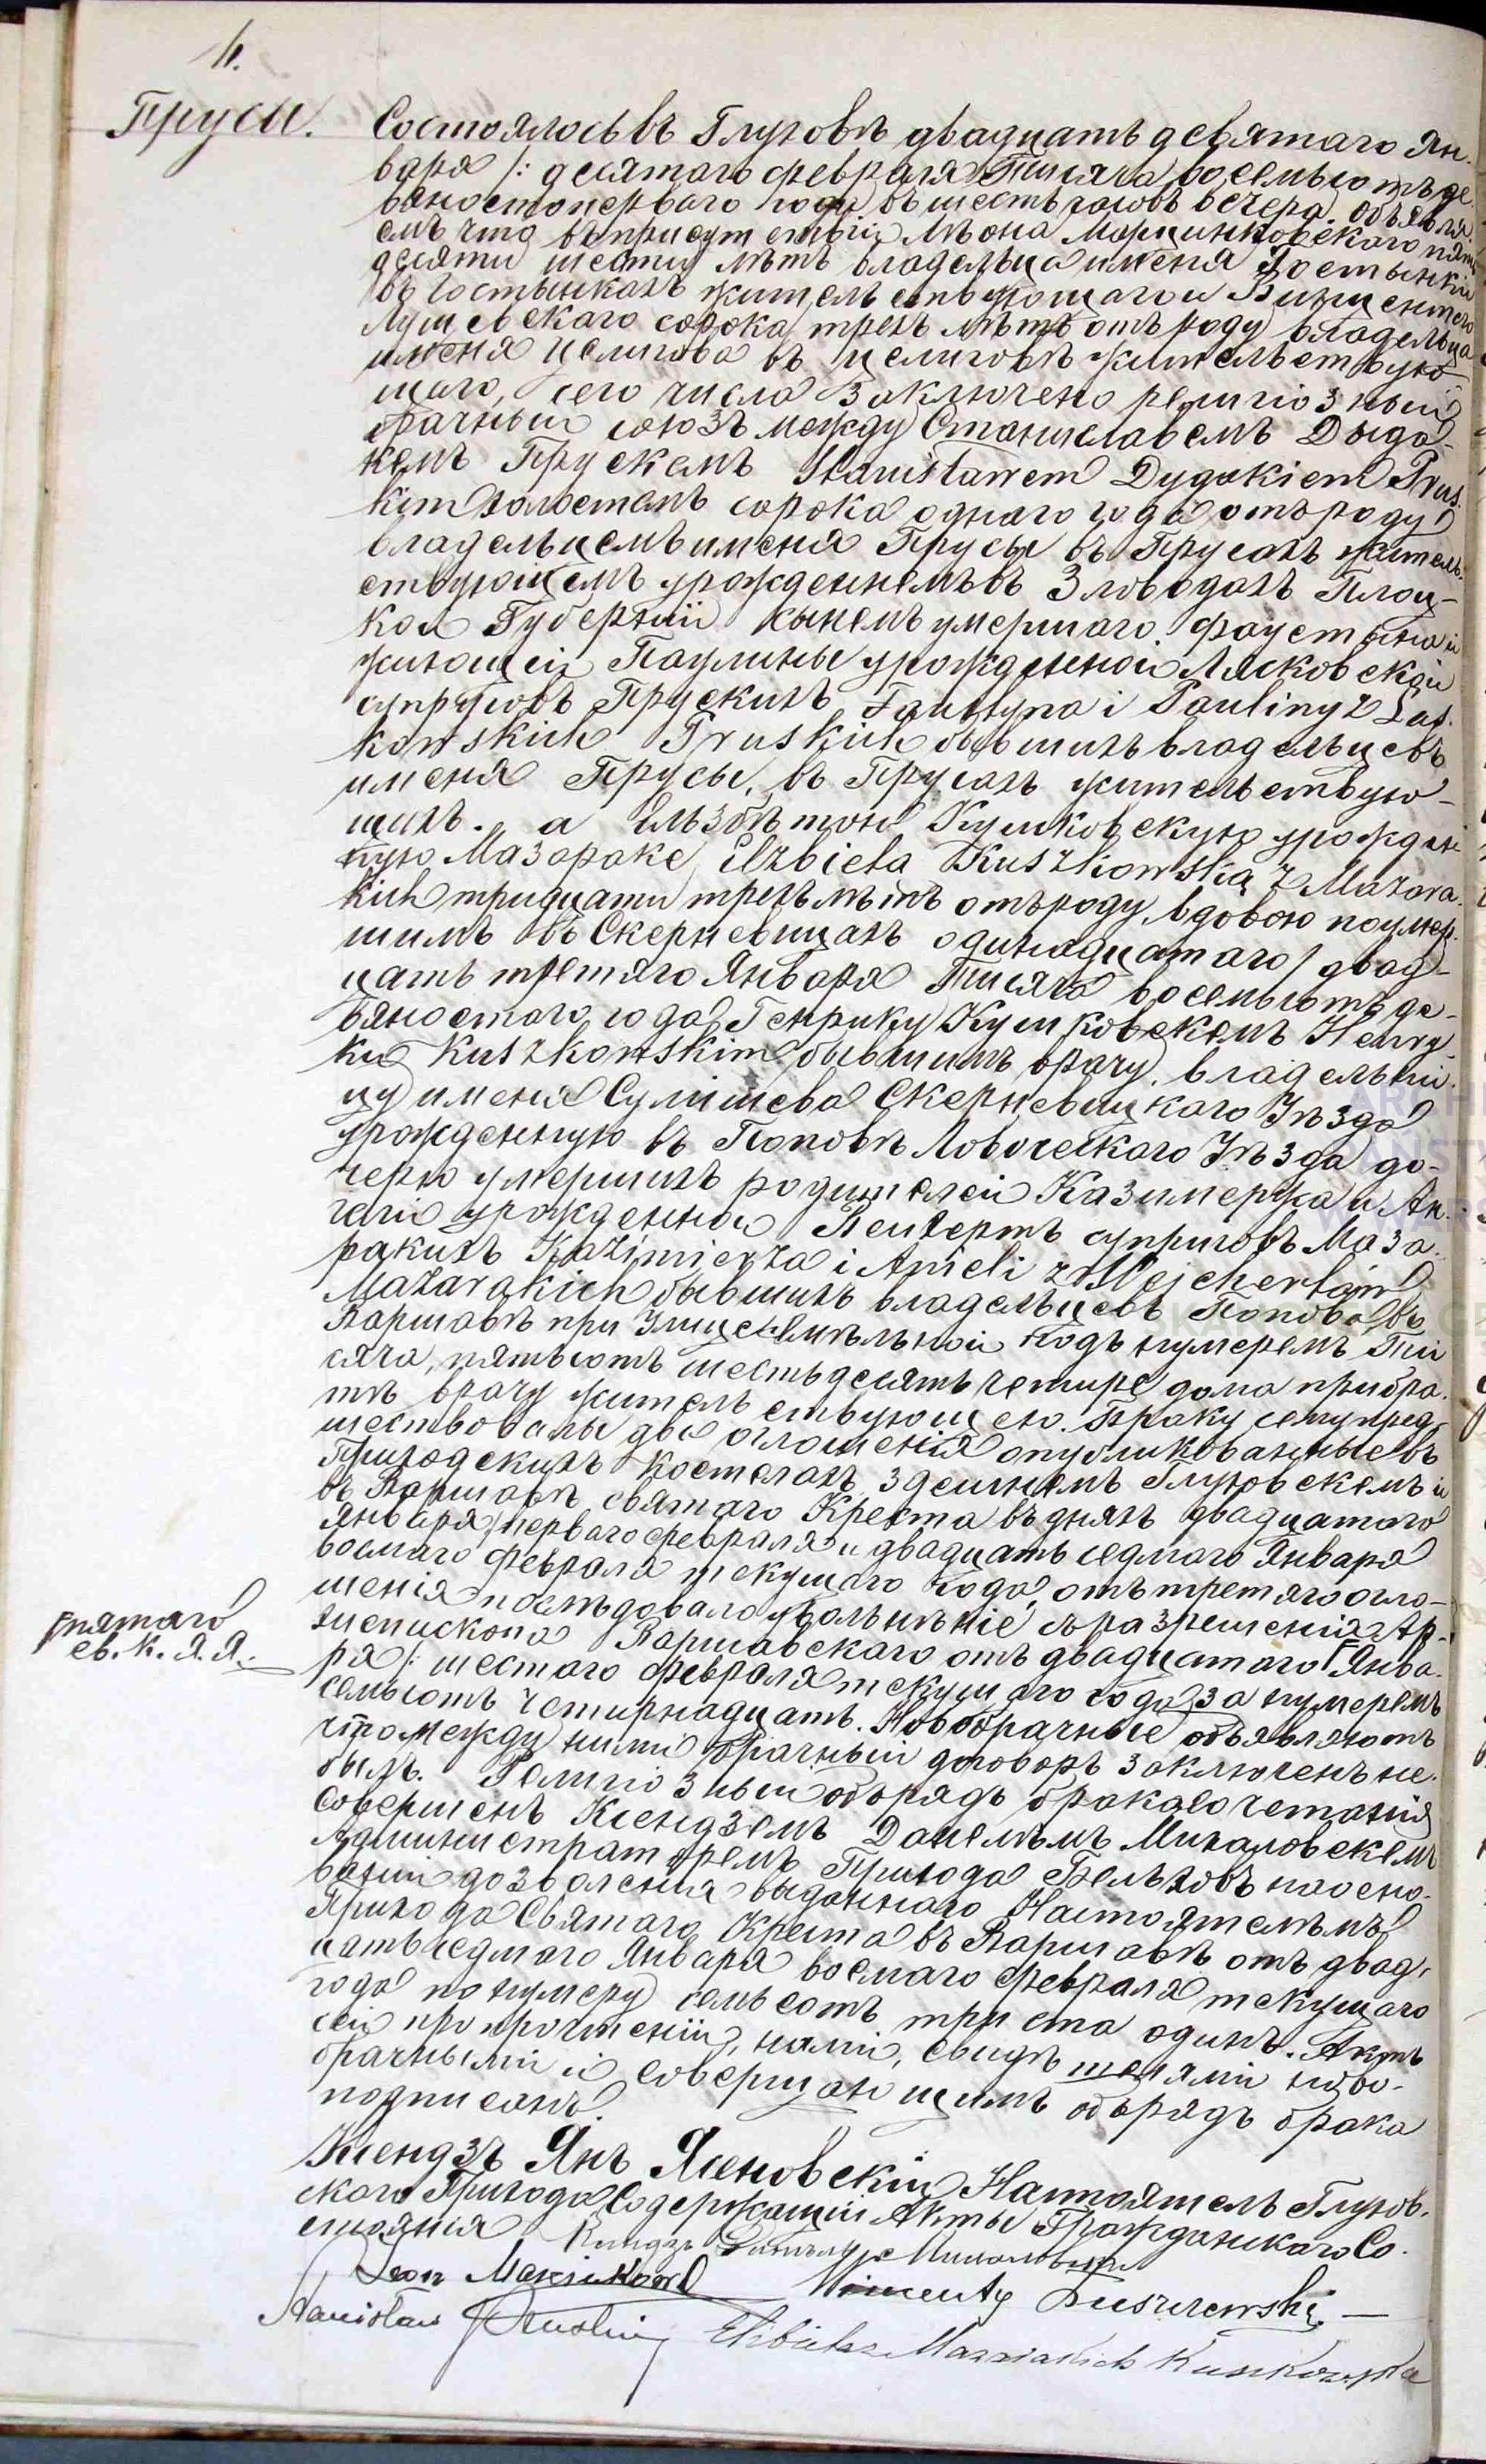 4.
Прусы.
Состоялось въ Глуховѣ двадцать девятаго Ян-
варя /: десятаго февраля Тысяча восемьсотъ де-
вяностоперваго года въ шесть часовъ вечера. Объявля-
емъ что въ присутствіи Леона Марцинковскаго пять
десяти шести лѣтъ владельца именя Гостынки
въ Гостынкахъ жительствующаго и Винцентего
Лущевскаго сорока трехъ лѣтъ отъ роду владельца
именя Целигова въ Целиговѣ жительствую-
щаго, сего числа заключено религіозный
брачный союзъ между Станиславемъ Дыда-
кемъ Прускемъ Stanisławem Dydakiem Prus
kim холостымъ сорока одного года отъ роду
владельцемъ именя Прусы въ Прусахъ житель-
ствующемъ урожденнемъ въ Зловодахъ Плоц-
кой Губерніи сынемъ умершаго Фаустына и
жиющей Паулины урожденной Лясковской
супруговъ Прускихъ Faustyna i Pauliny z Las-
kowskich Pruskich бывшихъ владельцевъ
именя Прусы, въ Прусахъ жительствую-
щихъ. а Ельзбѣтою Кушковскую урожден
ную Мазараке, Elżbieta Kuszkowską z Mazara-
kich тридцати трехъ лѣтъ отъ роду, вдовою по умер-
шимъ въ Скерневицахъ одинадцатаго / двад-
цать третяго Января Тысяча восемьсотъ де-
вяностаго года Генрику Кушковскемъ Henry-
ku Kuszkowskim бывшимъ врачу, владельи-
цу именя Сулишева Скерневицкаго Уѣзда
урожденную въ Поповѣ Ловичскаго Уѣзда до-
черю умершихъ родителей Казимержа и Ан-
гели урожденной Вейхертъ супруговъ Маза-
ракихъ Kazimierza i Anieli z Wejchertów
Mazarakich бывшихъ владельцевъ Попова, въ
Варшавѣ при Улице Хмѣльной подъ нумеремъ Ты
сяча, пятьсотъ шестьдесять четыре дома при бра-
тѣ врачу жительствующею. Браку сему пред-
шествовалы два оглошенія опубликованные въ
Приходскихъ костелахъ здешнемъ Глуховскемъ и
въ Варшавѣ святаго Креста въ дняхъ двадцатаго
Января / перваго февраля и двадцать седмаго Января
восмаго февраля текущаго года, отъ третяго огло-
шенія послѣдовало увольнѣніе съ разрешенія Ар-
хіепископа Варшавскаго отъ двадцатаго Г Янва-
Г пятаго
св. к. Я. Я.
ря /: шестаго февраля текущаго года за нумеремъ
семьсотъ четырнадцать. Новобрачные объявляютъ
что между ними брачный договоръ заключенъ не-
былъ. Религіозный обрядъ бракосочетанія
совершенъ Ксендземъ Данелемъ Михаловскемъ
Администраторемъ Прихода Бельховъ на осно-
ваніи дозволенія выданнаго Настоятелемъ
Прихода Святаго Креста въ Варшавѣ отъ двад-
цать седмаго Января восмаго февраля текущаго
года по нумеру семьсотъ триста одинъ. Актъ
сей по прочтеніи, нами, свидѣтелями ново-
брачными и совершающимъ обрядъ брака
подписанъ.
Ксендзъ Янъ Ясеновскій Настоятель Глухов-
скаго Прихода Содержащій Акты Гражданскаго Со-
стоянія
Ксендзъ
Leon
Wincenty Łuszczewski
Stanisław Pruski
Elżbieta z Mazarakich Kuszkowska